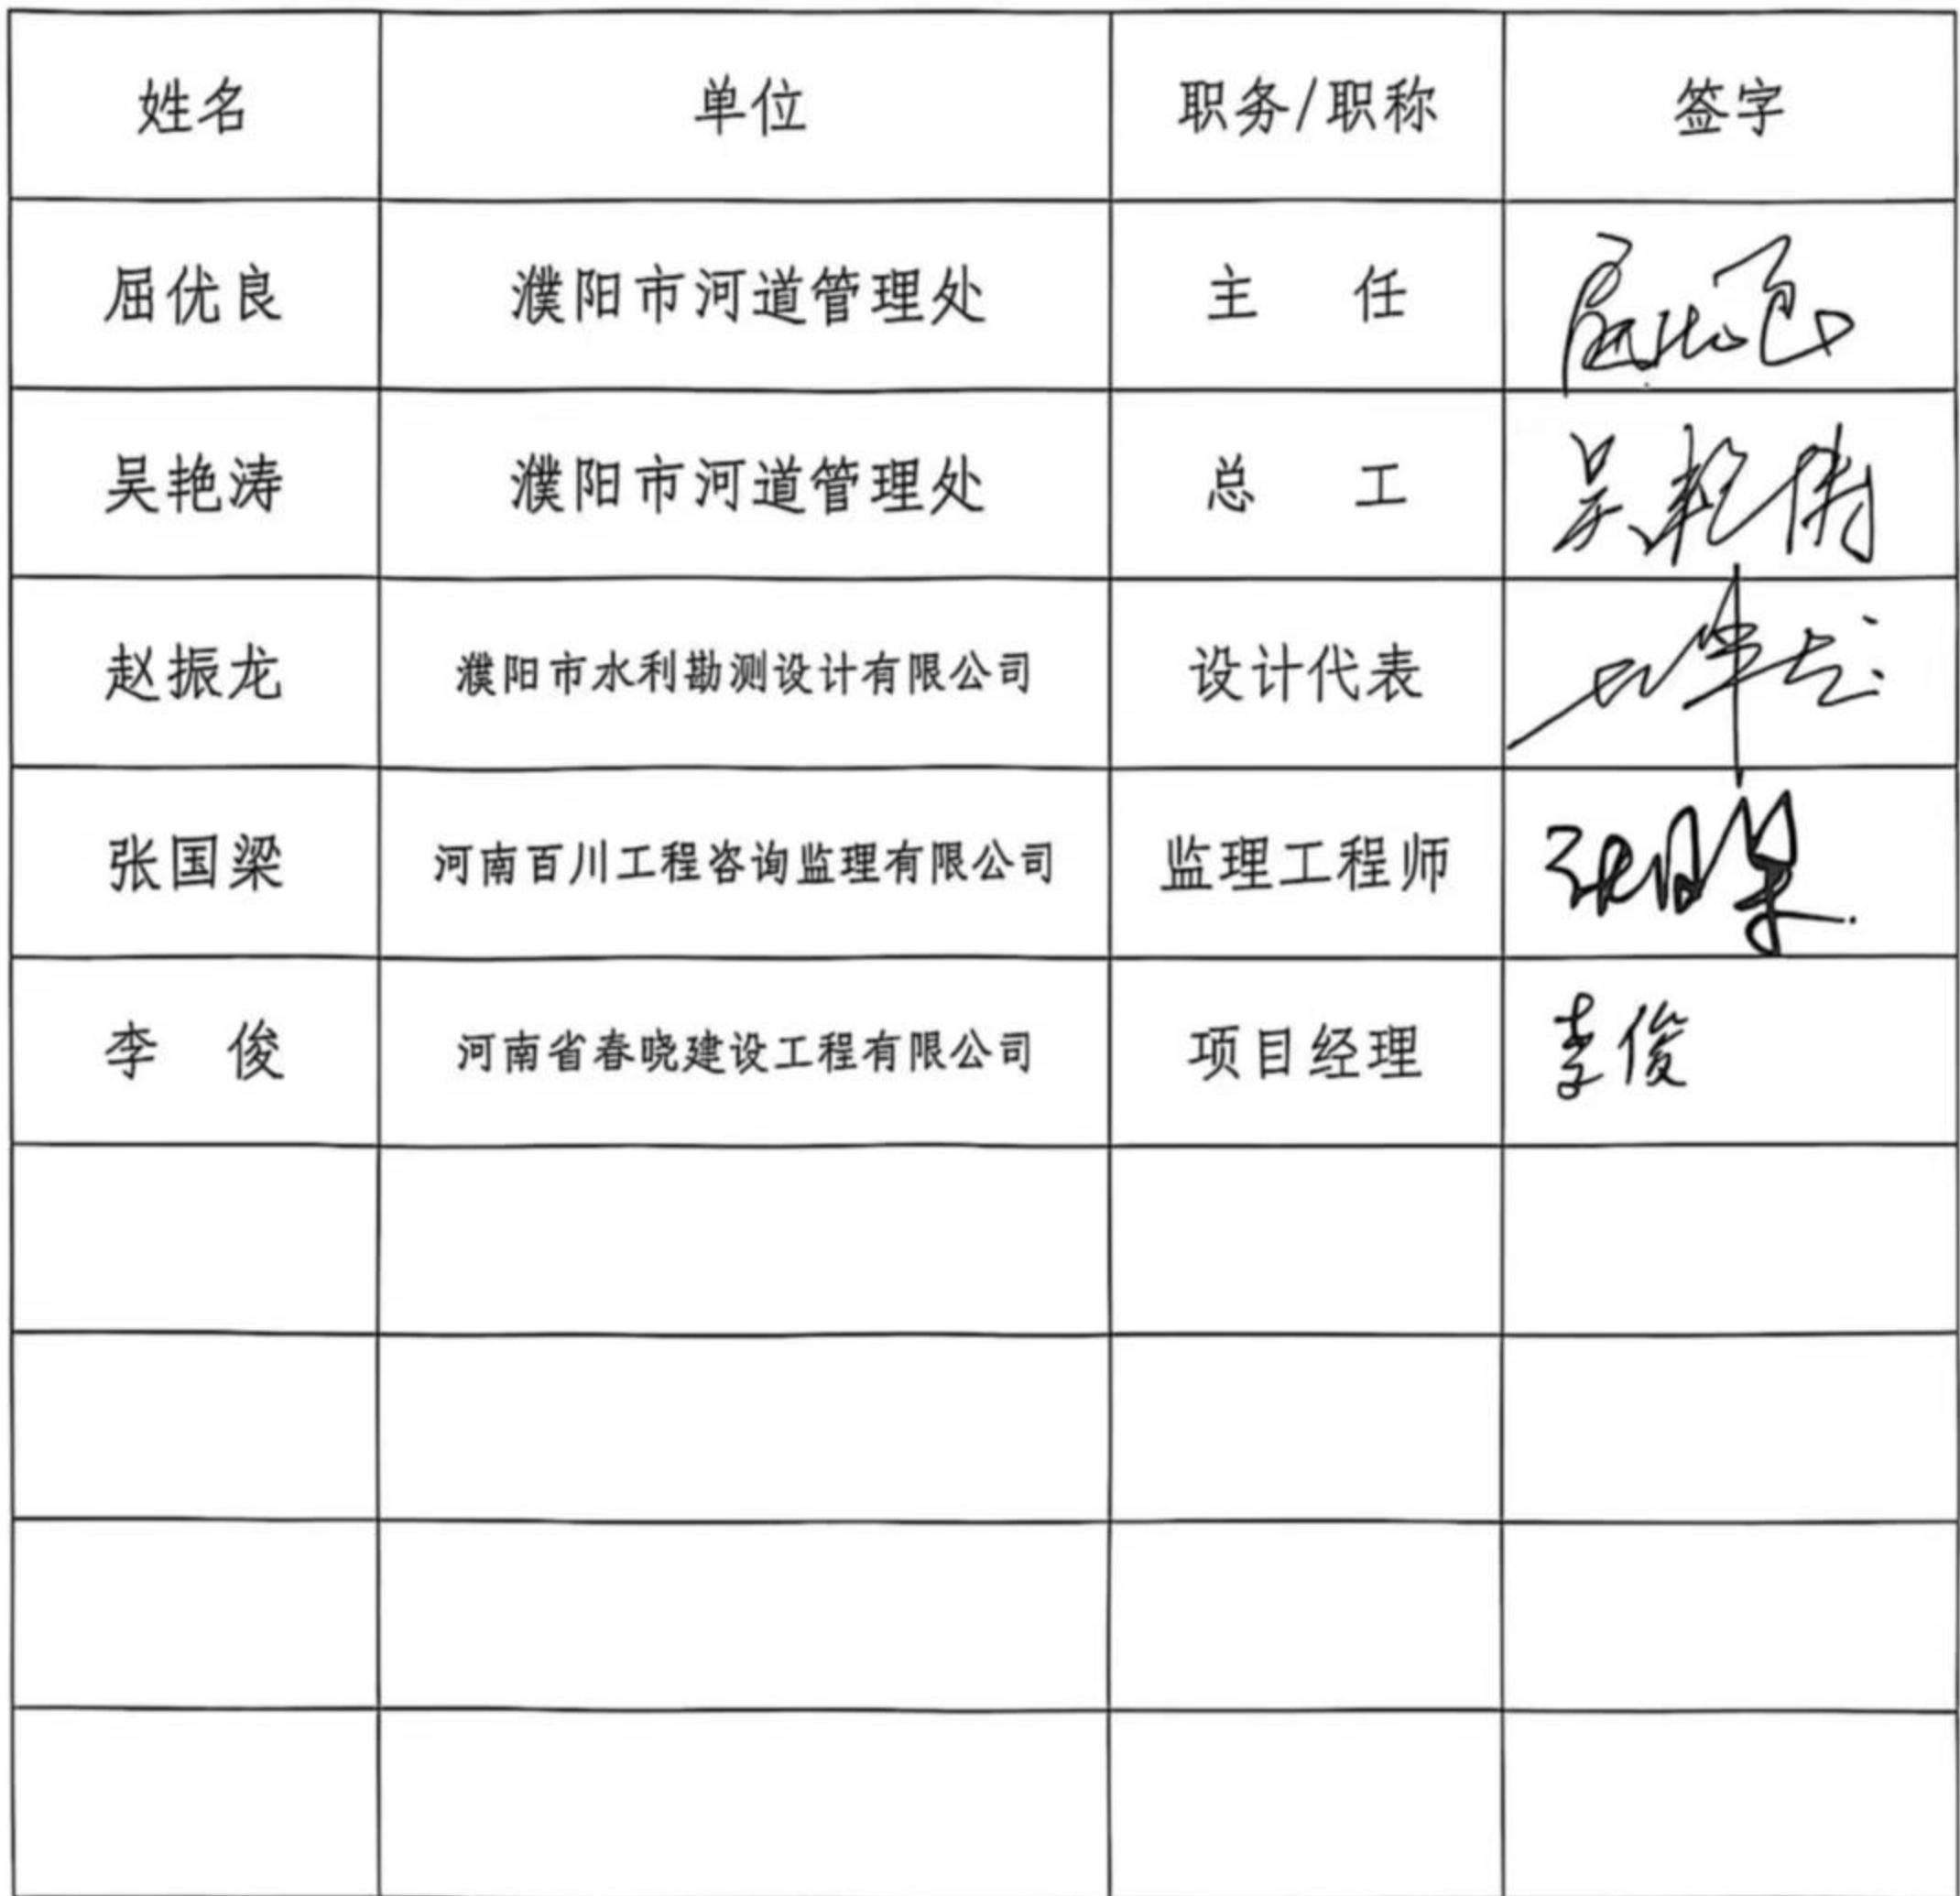 姓名 单位 职务/职称 签字
屈优良 濮阳市河道管理处 主 任 屈优良
吴艳涛 濮阳市河道管理处 总 工 吴艳涛
赵振龙 濮阳市水利勘测设计有限公司 设计代表
张国梁 河南百川工程咨询监理有限公司 监理工程师 张国梁
李 俊 河南省春晓建设工程有限公司 项目经理 李俊